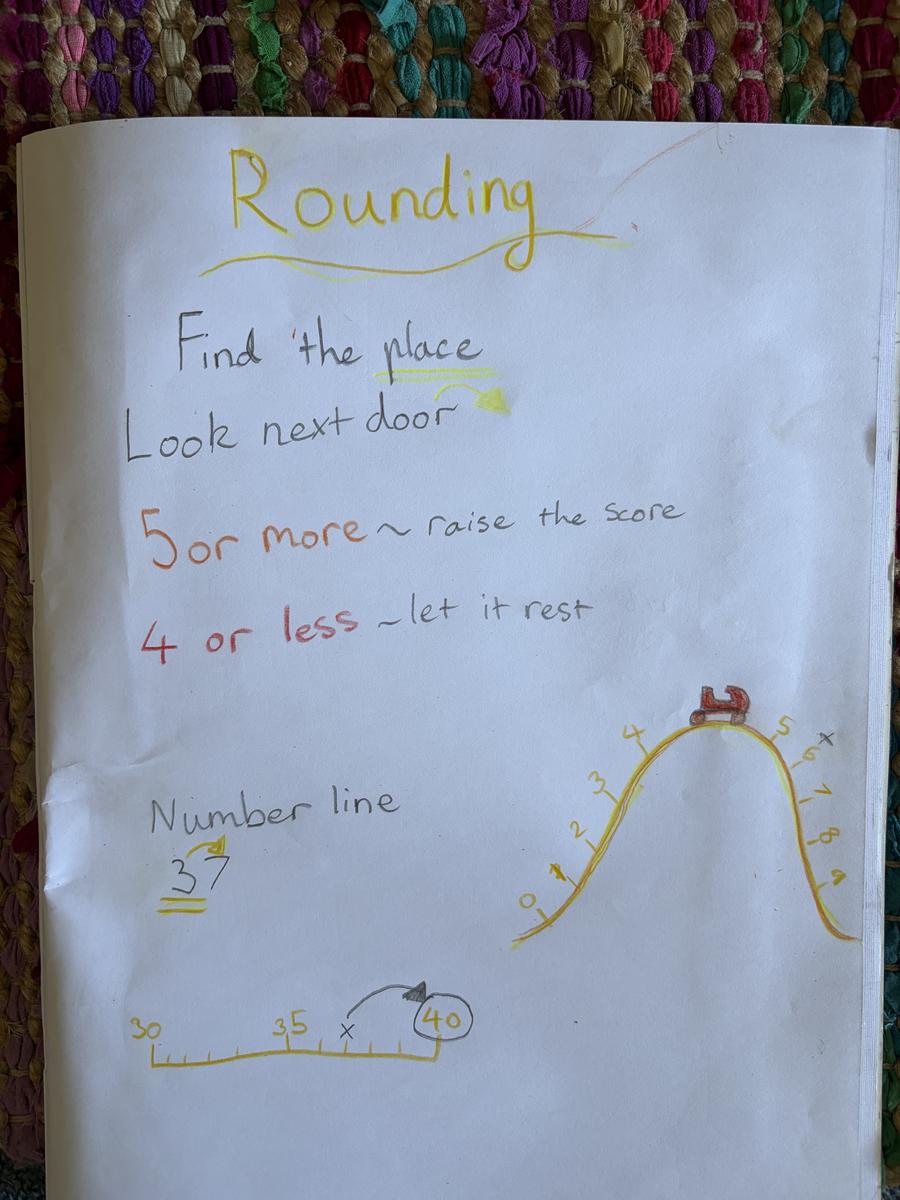 Rounding
Find the place
Look next door
5 or more ~ raise the score
4 or less ~ let it rest
4
5
x
3
6
2
7
1
8
0
9
Number line
37
30
35
x
40